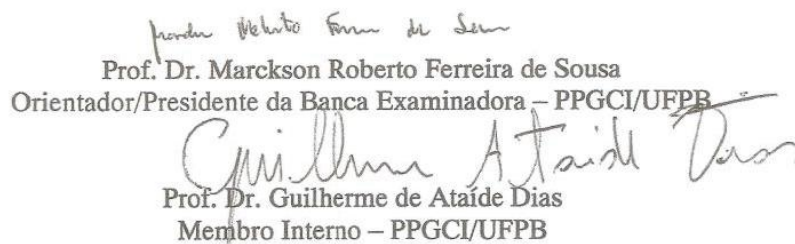 Prof. Dr. Marckson Roberto Ferreira de Sousa
Orientador/Presidente da Banca Examinadora – PPGCI/UFPB
Guilherme Ataide Dias
Prof. Dr. Guilherme de Ataíde Dias
Membro Interno – PPGCI/UFPB